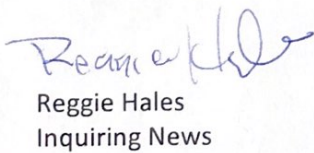 Reggie Hales
Reggie Hales
Inquiring News